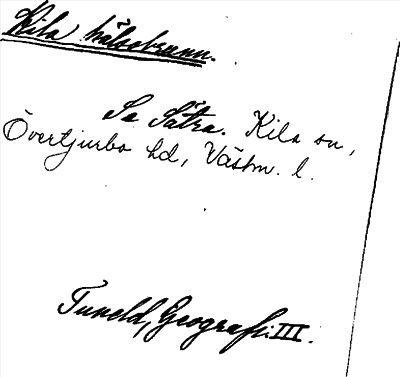 Kila hälsobrunn.
Se Sätra. Kila sn,
Övertjurbo hd, Västm. l.
Tuneld, Geografi. III.